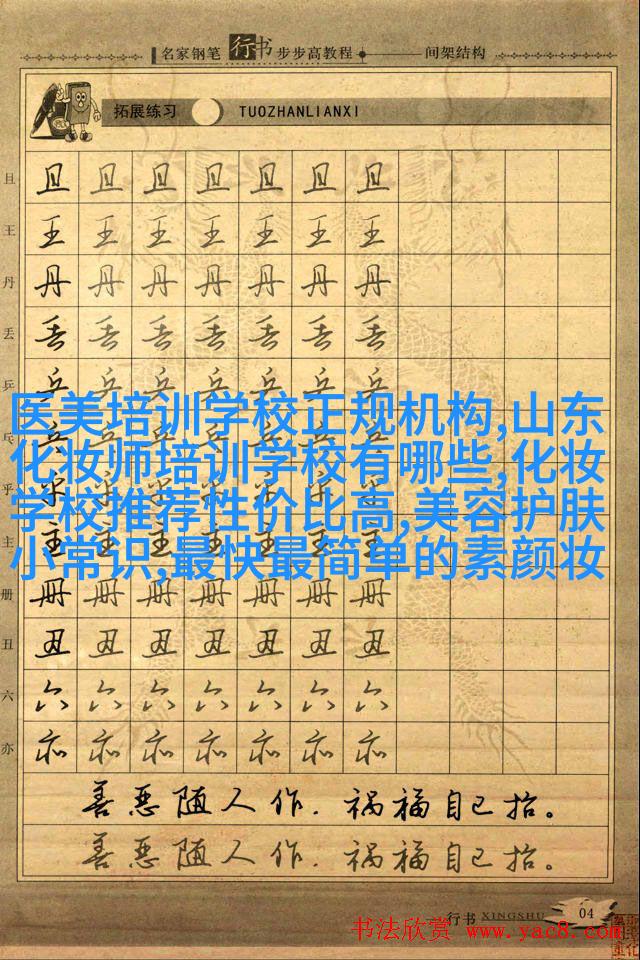 名家钢笔 行书 步步高教程 间架结构
拓展练习 TUOZHANLIANXI
且 且 且 且 且 且 且 且
王 王 王 王 王 王 王 王
丹 丹 丹 丹 丹 丹 丹 丹
丢 丢 丢 丢 丢 丢 丢 丢
乒 乒 乒 乒 乒 乒 乒 乒
医美培训学校正规机构,山东
乓 乓 乓 乓 乓 乓 乓 乓
化妆师培训学校有哪些,化妆
乎 乎 乎 乎 乎 乎 乎 乎
学校推荐性价比高,美容护肤
主 主 主 主 主 主 主 主
小常识,最快最简单的素颜妆
册 册 册 册 册 册 册 册
丑 丑 丑 丑 丑 丑 丑 丑
六 六 六 六 六 六 六 六
亦 亦 亦 亦 亦 亦 亦 亦
善恶随人作，祸福自己招。
善恶随人作，祸福自己招。
行书 XINGSHU 04
书法欣赏 www.yac8.com